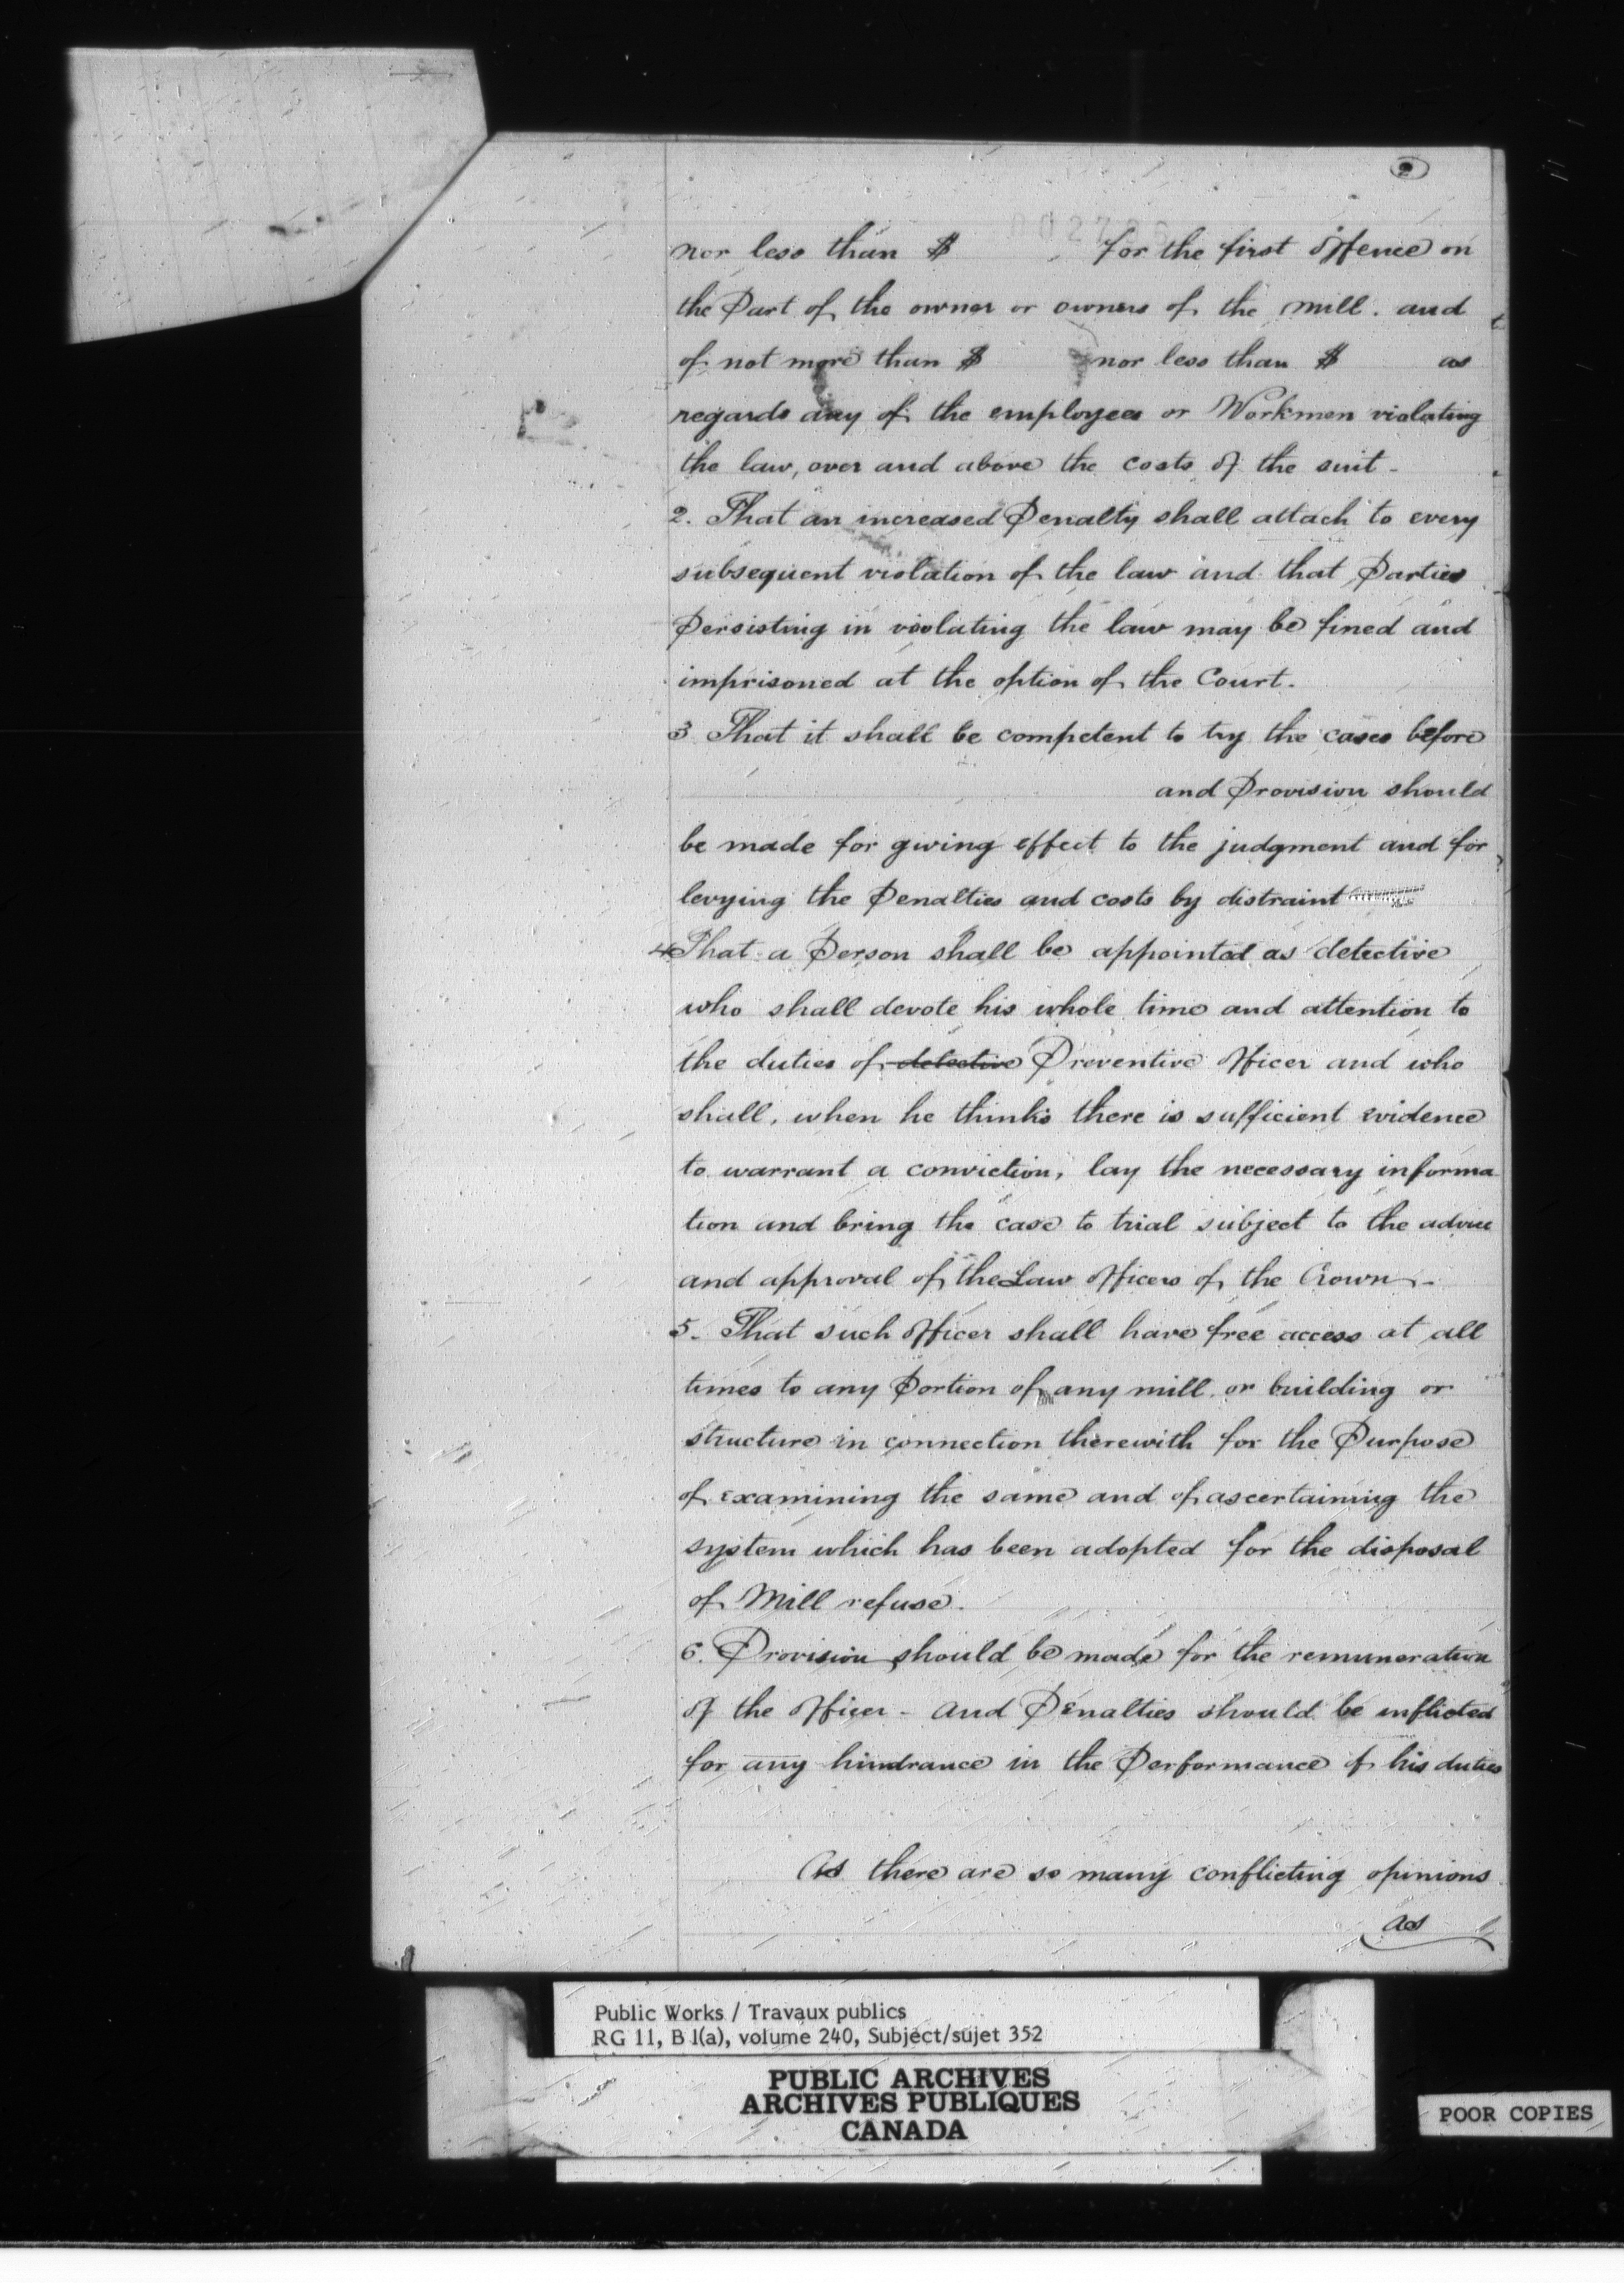 2
nor less than $ for the first offence on
the Part of the owner or owners of the mill. and
of not more than $ nor less than $ as
regards any of the employees or Workmen violating
the law, over and above the costs of the suit -
2. That an increased Penalty shall attach to every
subsequent violation of the law and that Parties
Persisting in violating the law may be fined and
imprisoned at the option of the Court.
3 That it shall be competent to try the cases before
and Provision should
be made for giving effect to the judgment and for
levying the Penalties and costs by distraint
4 That a Person shall be appointed as detective
who shall devote his whole time and attention to
the duties of detective Preventive Officer and who
shall, when he thinks there is sufficient evidence
to warrant a conviction, lay the necessary informa
tion and bring the case to trial subject to the advice
and approval of the Law Officers of the Crown -
5. That such Officer shall have free access at all
times to any Portion of any mill or building or
structure in connection therewith for the Purpose
of examining the same and of ascertaining the
system which has been adopted for the disposal
of Mill refuse.
6. Provision should be made for the remuneration
of the Officer - and Penalties should be inflicted
for any hindrance in the Performance of his duties
As there are so many conflicting opinions
as
Public Works / Travaux publics
RG 11, B 1(a), volume 240, Subject/sujet 352
PUBLIC ARCHIVES
ARCHIVES PUBLIQUES
CANADA
POOR COPIES